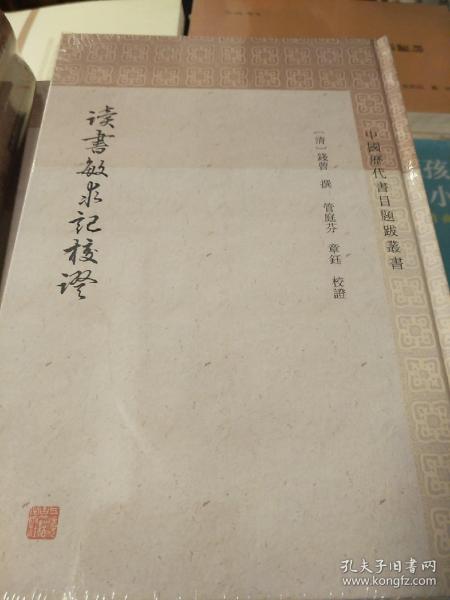 中國歷代書目題跋叢書
〔清〕錢曾 撰 管庭芬 章鈺 校證
读書敏求記校證
孩
小
孔夫子旧书网
www.kongfz.com